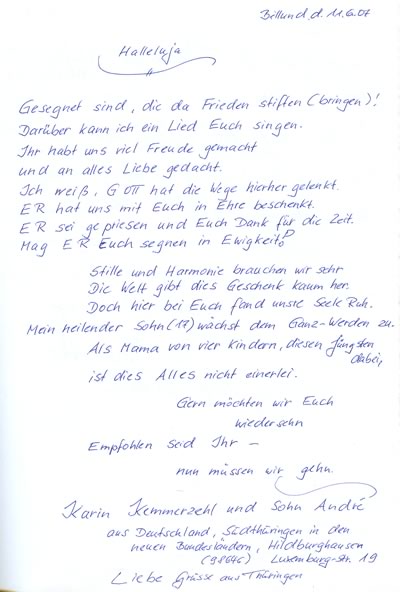 Billund, d. 11.6.07
Halleluja
Gesegnet sind, die da Frieden stiften (bringen)!
Darüber kann ich ein Lied Euch singen.
Ihr habt uns viel Freude gemacht
und an alles Liebe gedacht.
Ich weiß, GOTT hat die Wege hierher gelenkt.
ER hat uns mit Euch in Ehre beschenkt.
ER sei gepriesen und Euch Dank für die Zeit.
Mag ER Euch segnen in Ewigkeit!
Stille und Harmonie brauchen wir sehr
Die Welt gibt dies Geschenk kaum her.
Doch hier bei Euch fand unsre Seele Ruh.
Mein heilender Sohn (17) wächst dem Ganz-Werden zu.
Als Mama von vier Kindern, diesen Jüngsten
dabei,
ist dies Alles nicht einerlei.
Gern möchten wir Euch
wiedersehn
Empfohlen seid Ihr –
nun müssen wir gehn.
Karin Kemmerzehl und Sohn André
aus Deutschland, Südthüringen in den
neuen Bundesländern, Hildburghausen
(98646) Luxemburg-str. 19
Liebe Grüsse aus Thüringen